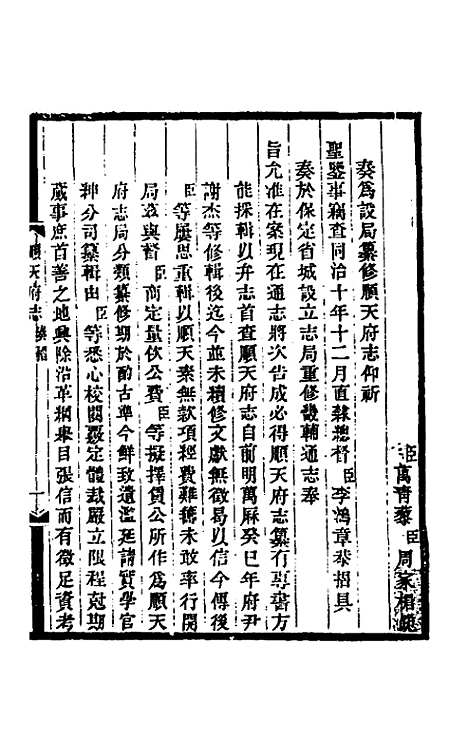 臣萬青藜臣周家楣跪
奏爲設局纂修順天府志仰祈
聖鑒事竊查同治十年十二月直隸總督臣李鴻章恭摺具
奏於保定省城設立志局重修畿輔通志奉
旨允准在案現在通志將次告成必得順天府志纂有專書方
能採輯以弁志首查順天府志自前明萬厤癸巳年府尹
謝杰等修輯後迄今並未續修文獻無徵易以信今傳後
臣等屢思重輯以順天素無款項經費難籌未敢率行開
局茲與督臣商定量佽公費臣等擬擇賃公所作爲順天
府志局分類纂修期於酌古準今鮮致遺濫延請實學官
紳分司纂輯由臣等悉心校閱覈定體裁嚴立限程尅期
蕆事庶首善之地興除沿革綱舉目張信而有徵足資考
順天府志
一